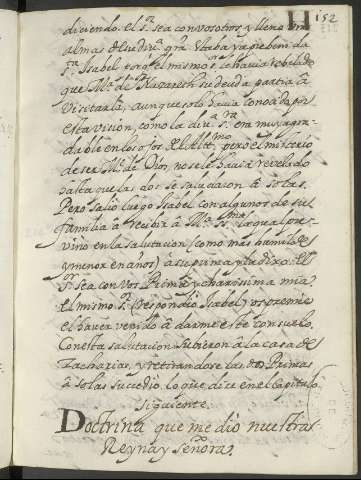 152
diciendo. el s.r sea con vosotros, y llene vras
almas de su div.a gra. Estaba ya prebenida
s.ta Isabel porq. el mismo s.r le havia rebelado
que M.a de Nazareth su deuda partia á
Visitarla, aunque solo havia conocido por
esta vision, como la div.a s.ra era muy agra-
dable en los ojos de el Altmo. pero el misterio
de ser M.e de Dios, no se le havia revelado
hasta que las dos se saludaron á solas.
Pero salió luego Isabel con algunos de su
familia á recibir á M.a s.ma la qual pre-
vino en la salutacion (como mas humilde
y menor en años) á su prima y le dixo: El
s.or sea con vos Prima y charissima mia.
el mismo s.r (respondio Isabel) os premie
el haver venido á darme este consuelo.
Con esta salutacion subieron á la casa de
Zacharias, y retirandose las dos Primas
á solas sucedio lo que diré en el Capitulo
siguiente.
Doctrina que me dio nuestra
Reyna y Señora.